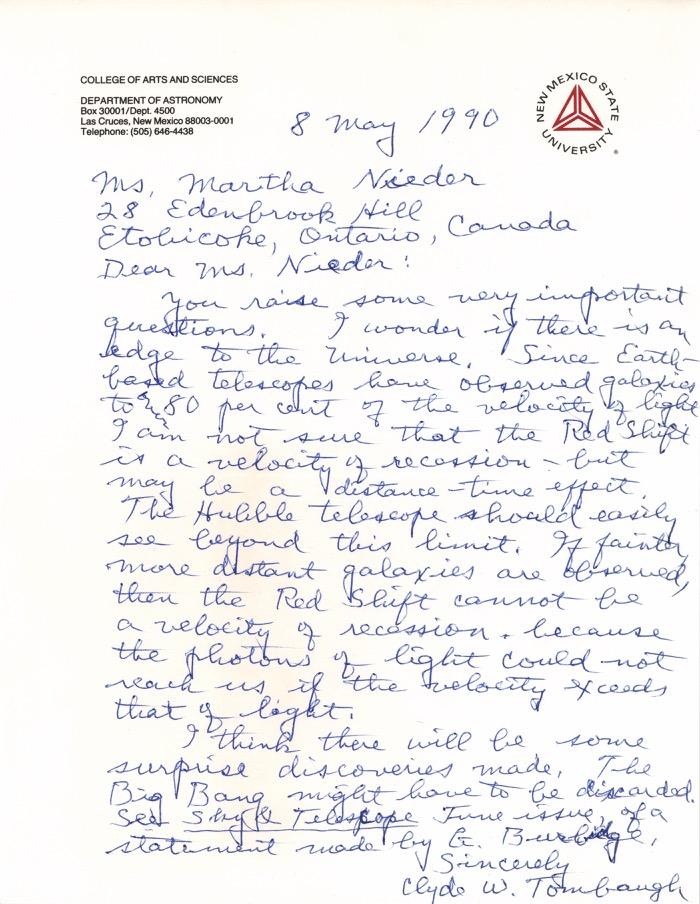 COLLEGE OF ARTS AND SCIENCES
DEPARTMENT OF ASTRONOMY
Box 30001/Dept. 4500
Las Cruces, New Mexico 88003-0001
Telephone: (505) 646-4438
NEW MEXICO STATE UNIVERSITY
8 May 1990
Ms. Martha Nieder
28 Edenbrook Hill
Etobicoke, Ontario, Canada
Dear Ms. Nieder:
You raise some very important
questions. I wonder if there is an
edge to the Universe. Since Earth-
based telescopes have observed galaxies
to 80 per cent of the velocity of light
I am not sure that the Red Shift
is a velocity of recession - but
may be a distance-time effect.
The Hubble telescope should easily
see beyond this limit. If fainter
more distant galaxies are observed,
then the Red Shift cannot be
a velocity of recession, because
the photons of light could not
reach us if the velocity exceeds
that of light.
I think there will be some
surprise discoveries made. The
Big Bang might have to be discarded.
See Sky & Telescope June issue, of a
statement made by G. Burbidge,
Sincerely
Clyde W. Tombaugh